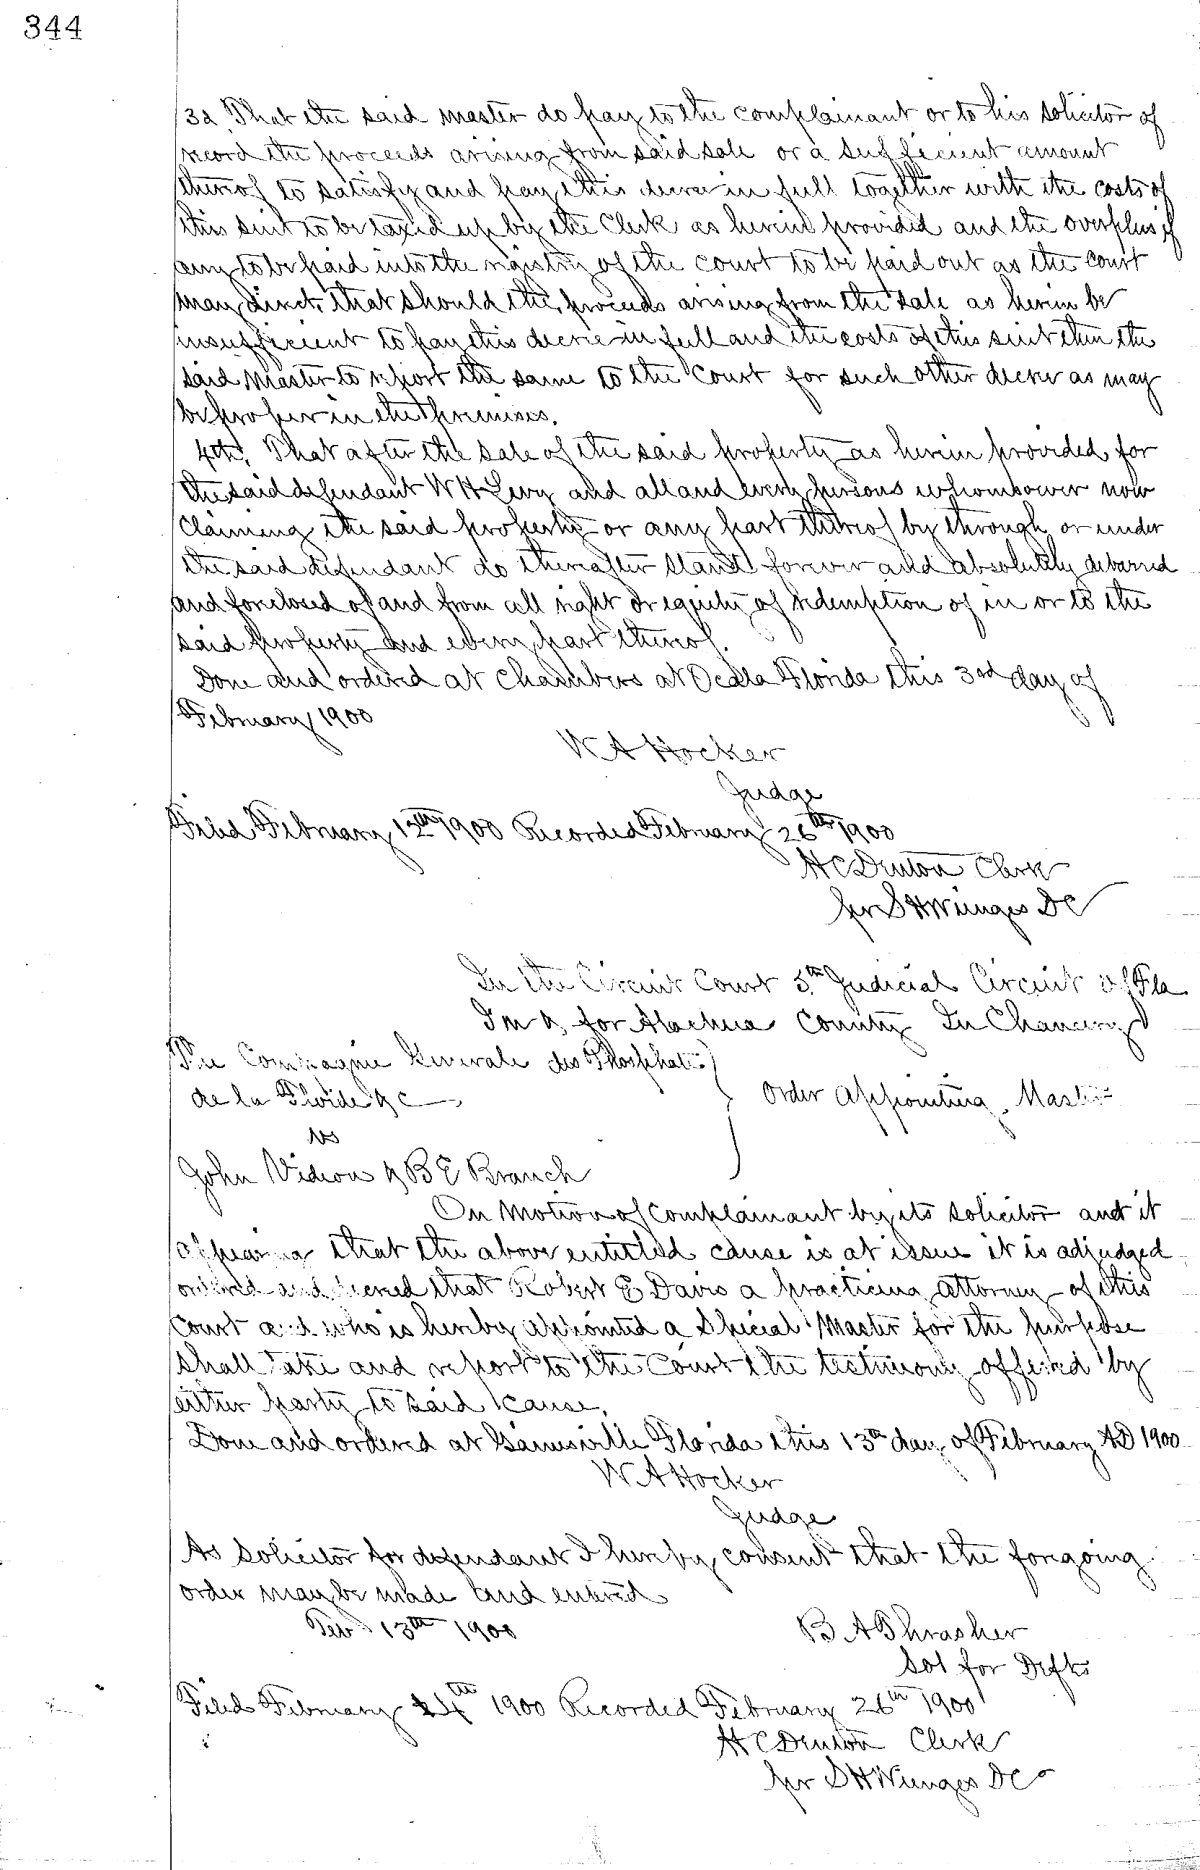 344
3d. That the said master do pay to the complainant or to his solicitor of
record the proceeds arising from said sale or a sufficient amount
thereof to satisfy and pay this decree in full together with the costs of
this suit to be taxed up by the Clerk as herein provided and the overplus if
any to be paid into the registry of the court to be paid out as the court
may direct, that should the proceeds arising from the sale as herein be
insufficient to pay this decree in full and the costs of this suit then the
said Master to report the same to the Court for such other decree as may
be proper in the premises.
4th. That after the sale of the said property as herein provided for
the said defendant W H Levy and all and every persons whomsoever now
claiming the said property or any part thereof by through or under
the said defendant do thereafter stand forever and absolutely debarred
and foreclosed of and from all right or equity of redemption of in or to the
said property and every part thereof.
Done and ordered at Chambers at Ocala Florida this 3rd day of
February 1900
W A Hocker
Judge
Filed February 12th 1900 Recorded February 26th 1900
H C Denton Clerk
per S H Wienges DC
In the Circuit Court 5th Judicial Circuit of Fla
In & for Alachua County In Chancery
The Compagnie Generale des Phosphates
de la Floride &c
Order Appointing Master
vs
John Vidson & B E Branch
On Motion of complainant by its solicitor and it
appearing that the above entitled cause is at issue it is adjudged
ordered and decreed that Robert E Davis a practicing attorney of this
Court and who is hereby appointed a Special Master for the purpose
shall take and report to the Court the testimony offered by
either party to said cause.
Done and ordered at Gainesville Florida this 13th day of February AD 1900
W A Hocker
Judge
As Solicitor for defendant I hereby consent that the foregoing
order may be made and entered
Feb 13th 1900
B A Thrasher
Sol for Defts
Filed February 24th 1900 Recorded February 26th 1900
H C Denton Clerk
per S H Wienges DC